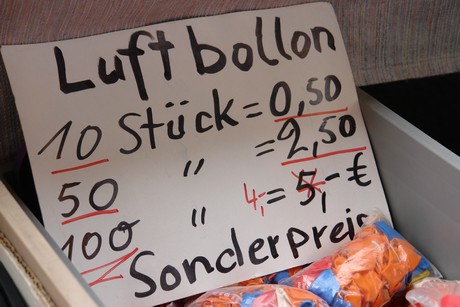 Luftbollon
10 Stück = 0,50
50 " = 2,50
100 " 4,- = 5,- €
Sonderpreis